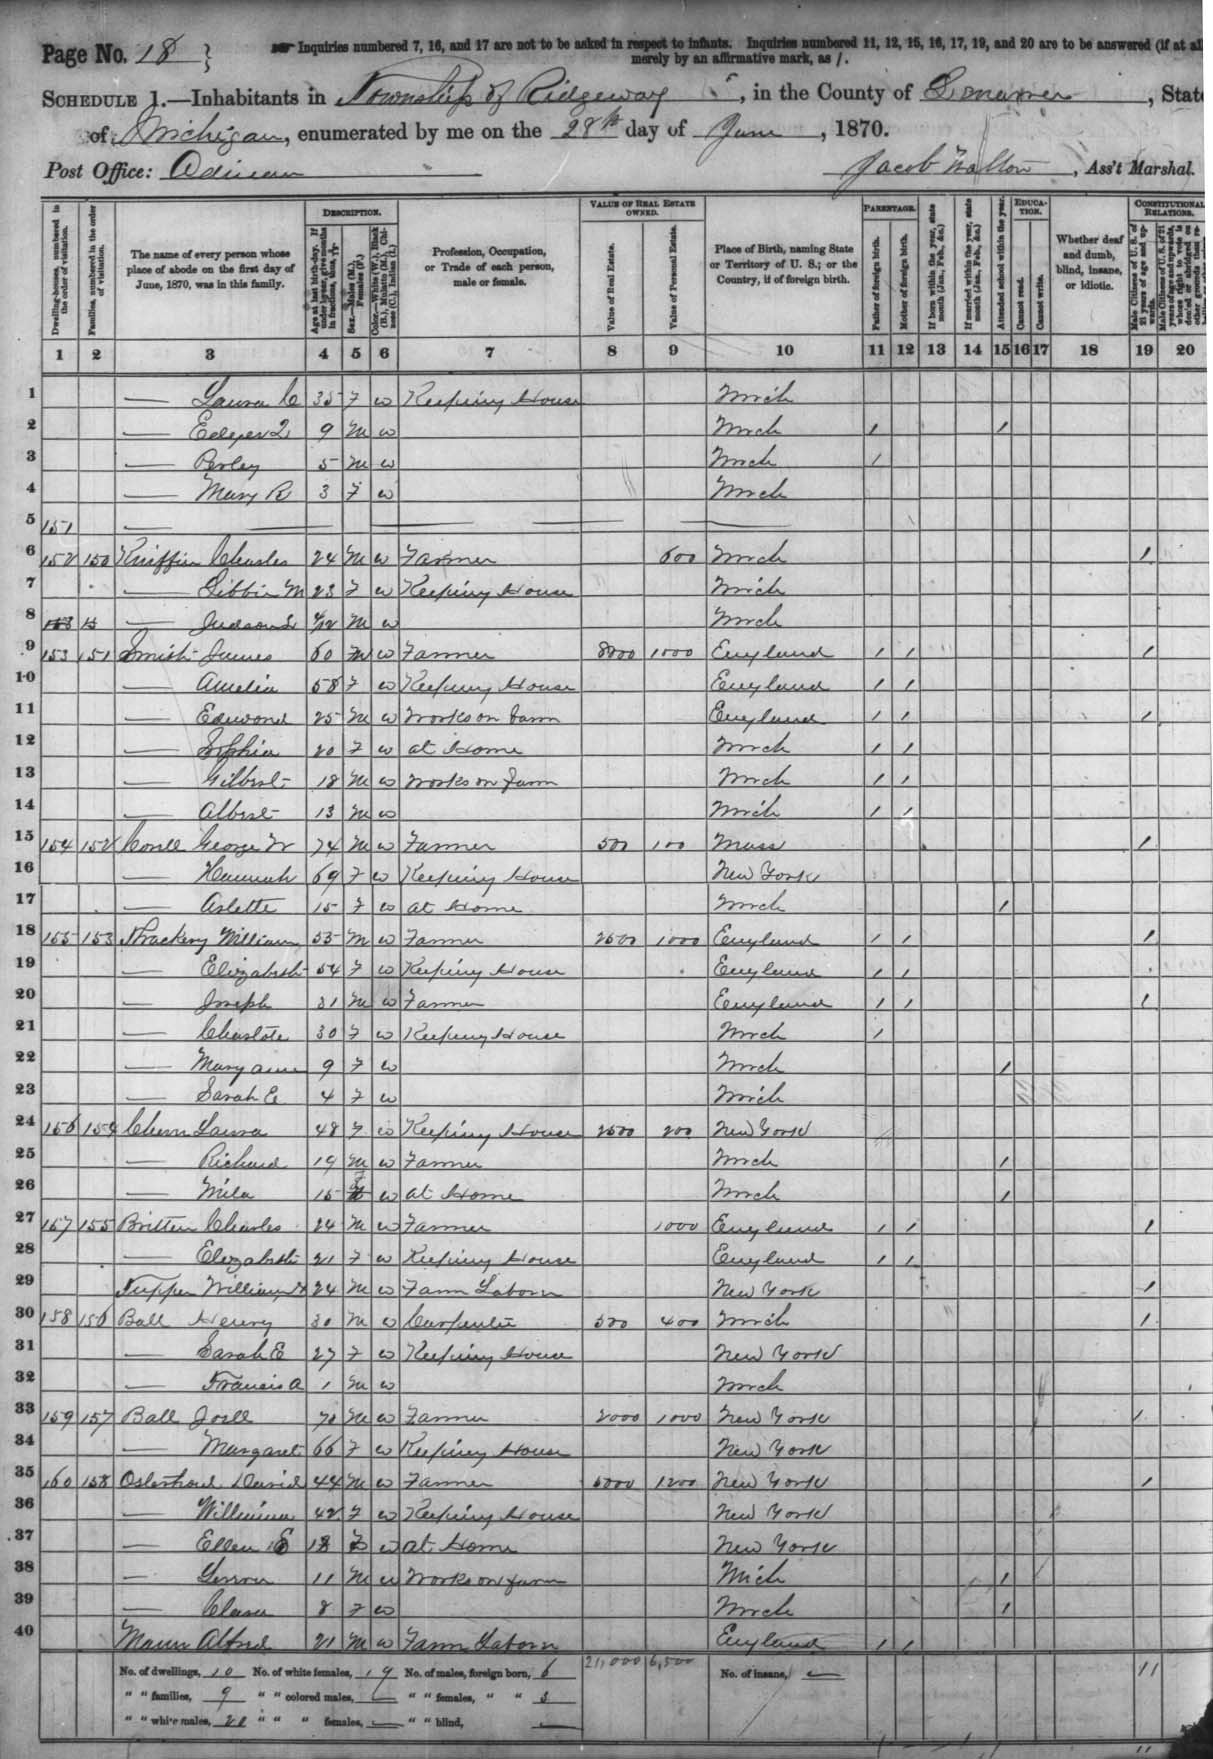 Page No. 18 }
Inquiries numbered 7, 16, and 17 are not to be asked in respect to infants. Inquiries numbered 11, 12, 15, 16, 17, 19, and 20 are to be answered (if at all)
merely by an affirmative mark, as /.
SCHEDULE 1.—Inhabitants in Township of Ridgeway, in the County of Lenawee, State
of Michigan, enumerated by me on the 28th day of June, 1870.
Post Office: Adrian Jacob Walton, Ass't Marshal.
Dwelling-houses, numbered in the order of visitation.
Families, numbered in the order of visitation.
The name of every person whose place of abode on the first day of June, 1870, was in this family.
DESCRIPTION.
Sex.—Males (M.), Females (F.)
Profession, Occupation, or Trade of each person, male or female.
VALUE OF REAL ESTATE OWNED.
Value of Real Estate.
Value of Personal Estate.
Place of Birth, naming State or Territory of U. S.; or the Country, if of foreign birth.
PARENTAGE.
Father of foreign birth.
Mother of foreign birth.
If born within the year, state month (Jan., Feb., &c.)
If married within the year, state month (Jan., Feb., &c.)
EDUCATION.
Attended school within the year.
Cannot read.
Cannot write.
Whether deaf and dumb, blind, insane, or idiotic.
CONSTITUTIONAL RELATIONS.
1 2 3 4 5 6 7 8 9 10 11 12 13 14 15 16 17 18 19 20
1 — Laura C 35 F W Keeping House Mich
2 — 9 M W Mich / /
3 — Perley 5 M W Mich /
4 — Mary R 3 F W Mich
5 151 — — — — — —
6 152 150 Kniffin Charles 24 M W Farmer 600 Mich /
7 — Libbie M 23 F W Keeping House Mich
8 — Judson M W Mich
9 153 151 Smith James 60 M W Farmer 8000 1000 England / / /
10 — Amelia 58 F W Keeping House England / /
11 — Edward 25 M W Works on farm England / / /
12 — Sophia 20 F W at Home Mich / /
13 — Gilbert 18 M W Works on farm Mich / /
14 — Albert 13 M W Mich / /
15 154 152 George W 74 M W Farmer 500 100 Mass /
16 — Hannah 69 F W Keeping House New York
17 — Arlette 15 F W at Home Mich /
18 155 153 William 55 M W Farmer 2500 1000 England / / /
19 — Elizabeth 54 F W Keeping House England / /
20 — Joseph 31 M W Farmer England / / /
21 — Charlote 30 F W Keeping House Mich /
22 — Mary ann 9 F W Mich /
23 — Sarah E 4 F W Mich
24 156 154 Laura 48 F W Keeping House 2500 200 New York
25 — Richard 19 M W Farmer Mich /
26 — Mila 15 F W at Home Mich /
27 157 155 Britten Charles 24 M W Farmer 1000 England / / /
28 — Elizabeth 21 F W Keeping House England / /
29 Tupper William H 24 M W Farm Laborn New York /
30 158 156 Ball Henry 30 M W Carpenter 500 400 Mich /
31 — Sarah E 27 F W Keeping House New York
32 — Francis A 1 M W Mich
33 159 157 Ball Joell 70 M W Farmer 2000 1000 New York /
34 — Margaret 66 F W Keeping House New York
35 160 158 Osterhoud David 44 M W Farmer 5000 1200 New York /
36 — 42 F W Keeping House New York
37 — Ellen 18 F W at Home New York
38 — 11 M W Works on farm Mich /
39 — Clara 8 F W Mich /
40 Mann Alfred 21 M W Farm Laborn England / /
No. of dwellings, 10 No. of white females, 19 No. of males, foreign born, 6 21,000 6,500 No. of insane, — 11
" " families, 9 " " colored males, — " " females, " " 3
" " white males, 20 " " " females, — " " blind, —